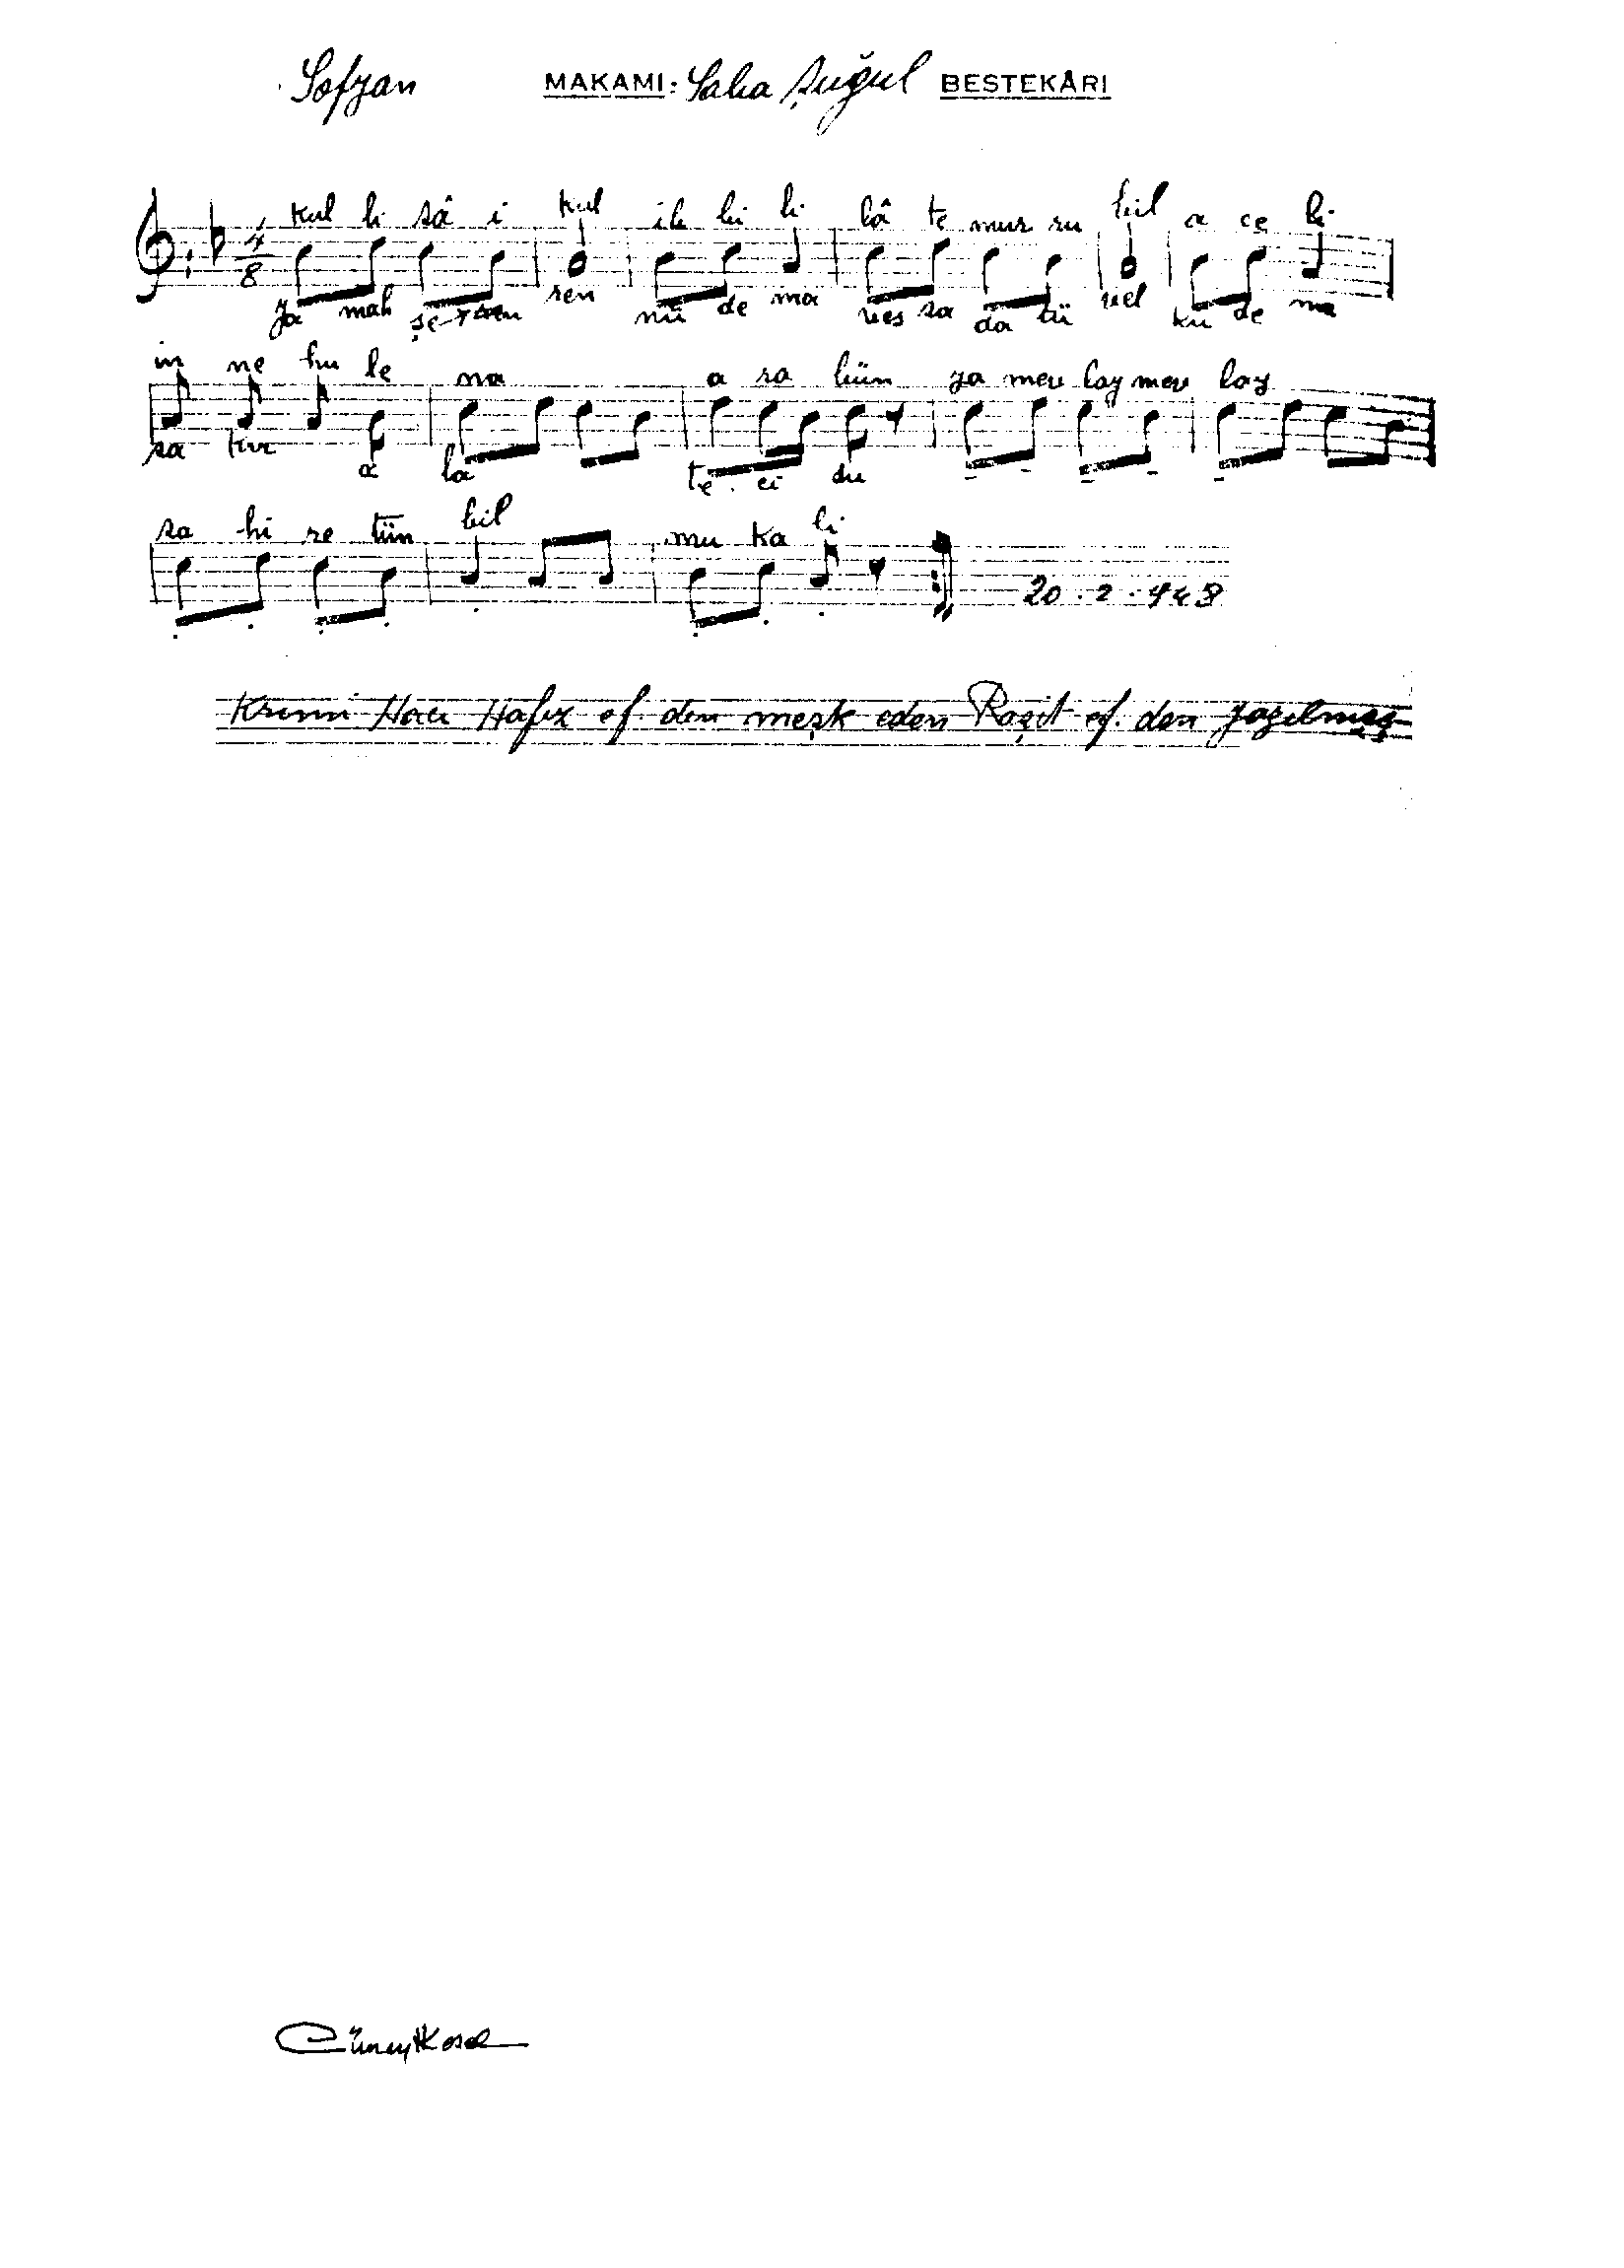 Sofyan MAKAMI: Saba Şuğul BESTEKÂRI
4
8
Kul li sâ i kul ib bi li lâ te mur ru bil a ce li
ya mah şe ren nü de ma ves sa da tü vel kü de ma
in ne hu le na a ra bün ya mev lay mev lay
sa kır a la te ci du
sa hi re tün bil mu ka li
20.2.948
Kırımi Hacı Hafız ef. den meşk eden Raşit ef. den yazılmış
Cüneyt Kosal